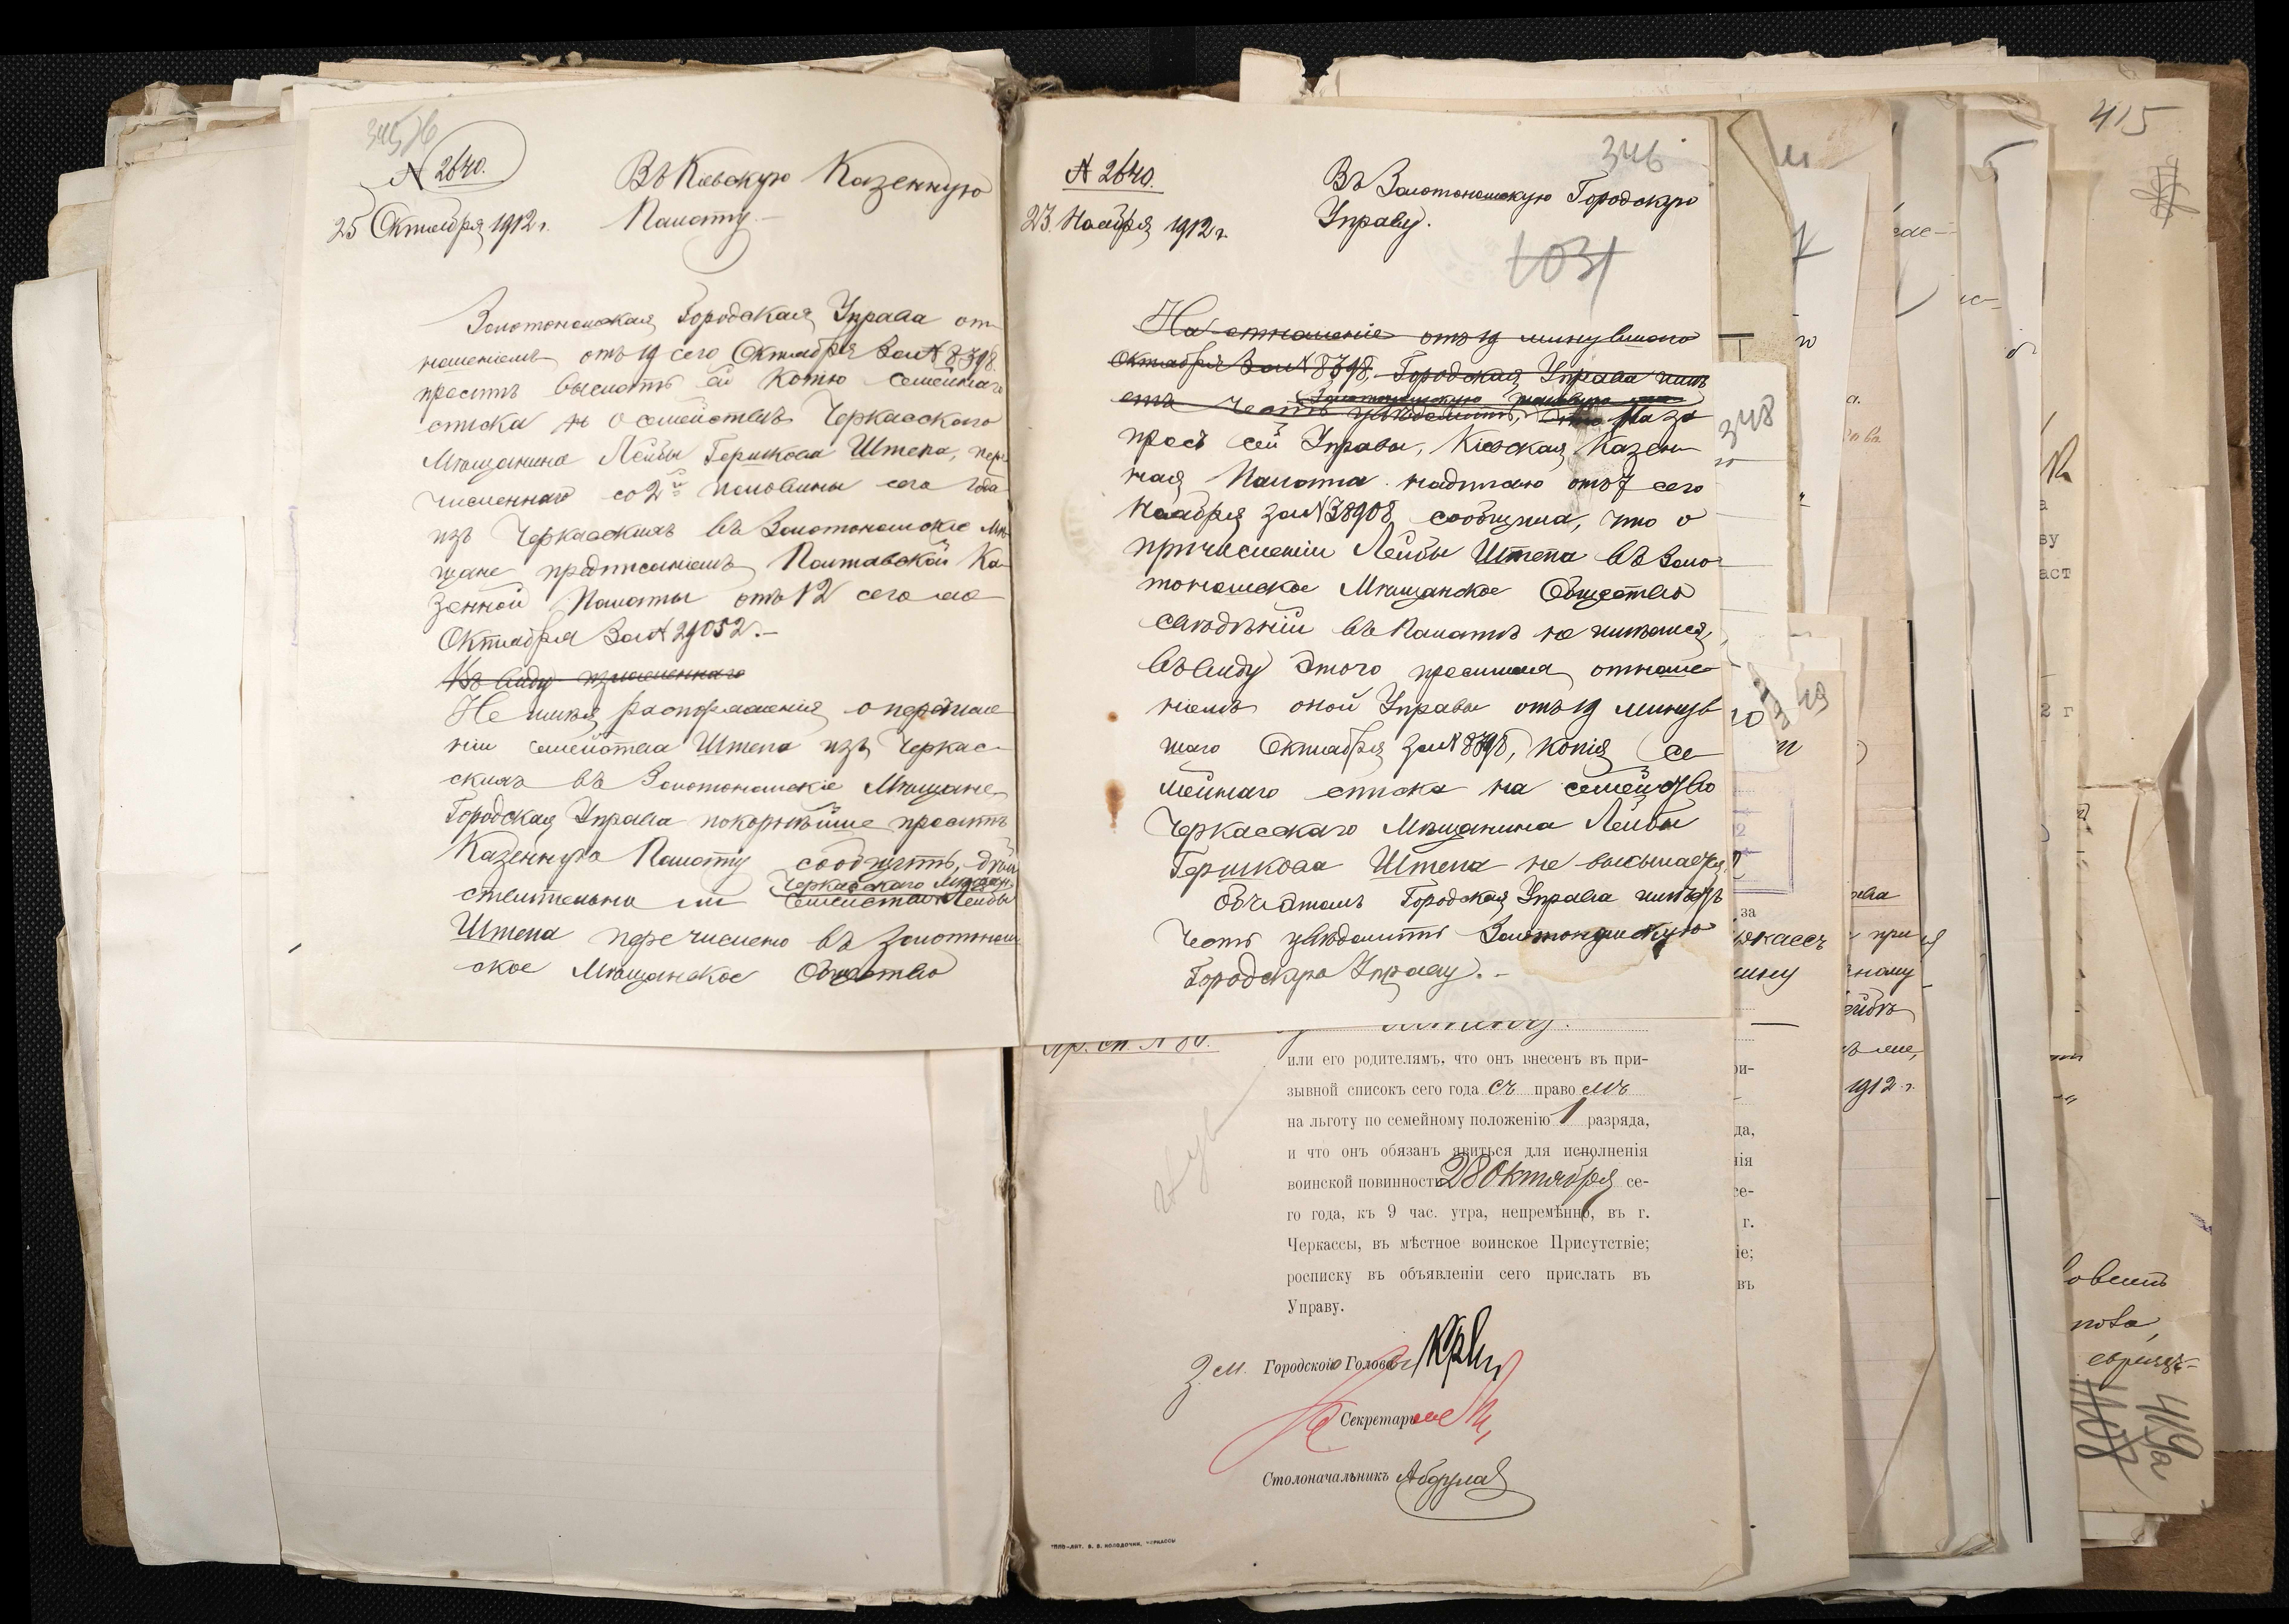 № 2640.
25 Октября 1912 г.
Въ Кіевскую Казенную
Палату.
Золотоношская Городская Управа от-
ношеніемъ отъ 19 сего Октября за № 8798
проситъ выслать ей копію семейнаго
списка о семействѣ Черкасскаго
Мѣщанина Лейбы Гершкова Штепа, пере
численнаго со 2й половины сего года
изъ Черкасскихъ въ Золотоношскіе Мѣ-
щане предписаніемъ Полтавской Ка-
зенной Палаты отъ 12 сего же
Октября за № 29052.-
Въ виду изложеннаго
Не имѣя распоряженія о перечисле
ніи семейства Штепа изъ Черкас-
скихъ въ Золотоношскіе Мѣщане,
Городская Управа покорнѣйше проситъ
Казенную Палату сообщить, дѣй
Черкасскаго Мѣщан.
ствительно ли семейство Лейбы
Штепа перечислено въ Золотонош
ское Мѣщанское Общество
346
№ 2640.
23 Ноября 1912 г.
Въ Золотоношскую Городскую
Управу.
1031
На отношеніе отъ 19 минувшаго
Октября за № 8798, Городская Управа имѣ
етъ честь увѣдомить, что На за
просъ сей Управы, Кіевская Казен-
ная Палата надписью отъ 7 сего
Ноября за № 38908 сообщила, что о
причисленіи Лейбы Штепа въ Золо-
тоношское Мѣщанское Общество
свѣдѣній въ Палатѣ не имѣется,
въ виду этого просимая отноше-
ніемъ оной Управы отъ 19 минув
шаго Октября за № 8798, копія се-
мейнаго списка на семейство
Черкасскаго Мѣщанина Лейбы
Гершкова Штепа не высылается.
Объ этомъ Городская Управа имѣетъ
честь увѣдомить Золотоношскую
Городскую Управу.-
Пр. сп. № 80.
или его родителямъ, что онъ внесенъ въ при-
зывной списокъ сего года съ право мъ
на льготу по семейному положенію 1 разряда,
и что онъ обязанъ явиться для исполненія
воинской повинности 28 Октября се-
го года, къ 9 час. утра, непремѣнно, въ г.
Черкассы, въ мѣстное воинское Присутствіе;
росписку въ объявленіи сего прислать въ
Управу.
Зам. Городского Головы
Секретарь
Столоначальникъ
ТИПО-ЛИТ. В. В. КОЛОДОЧКИ, ЧЕРКАССЫ
348
за
1912 г.
415
419а
418